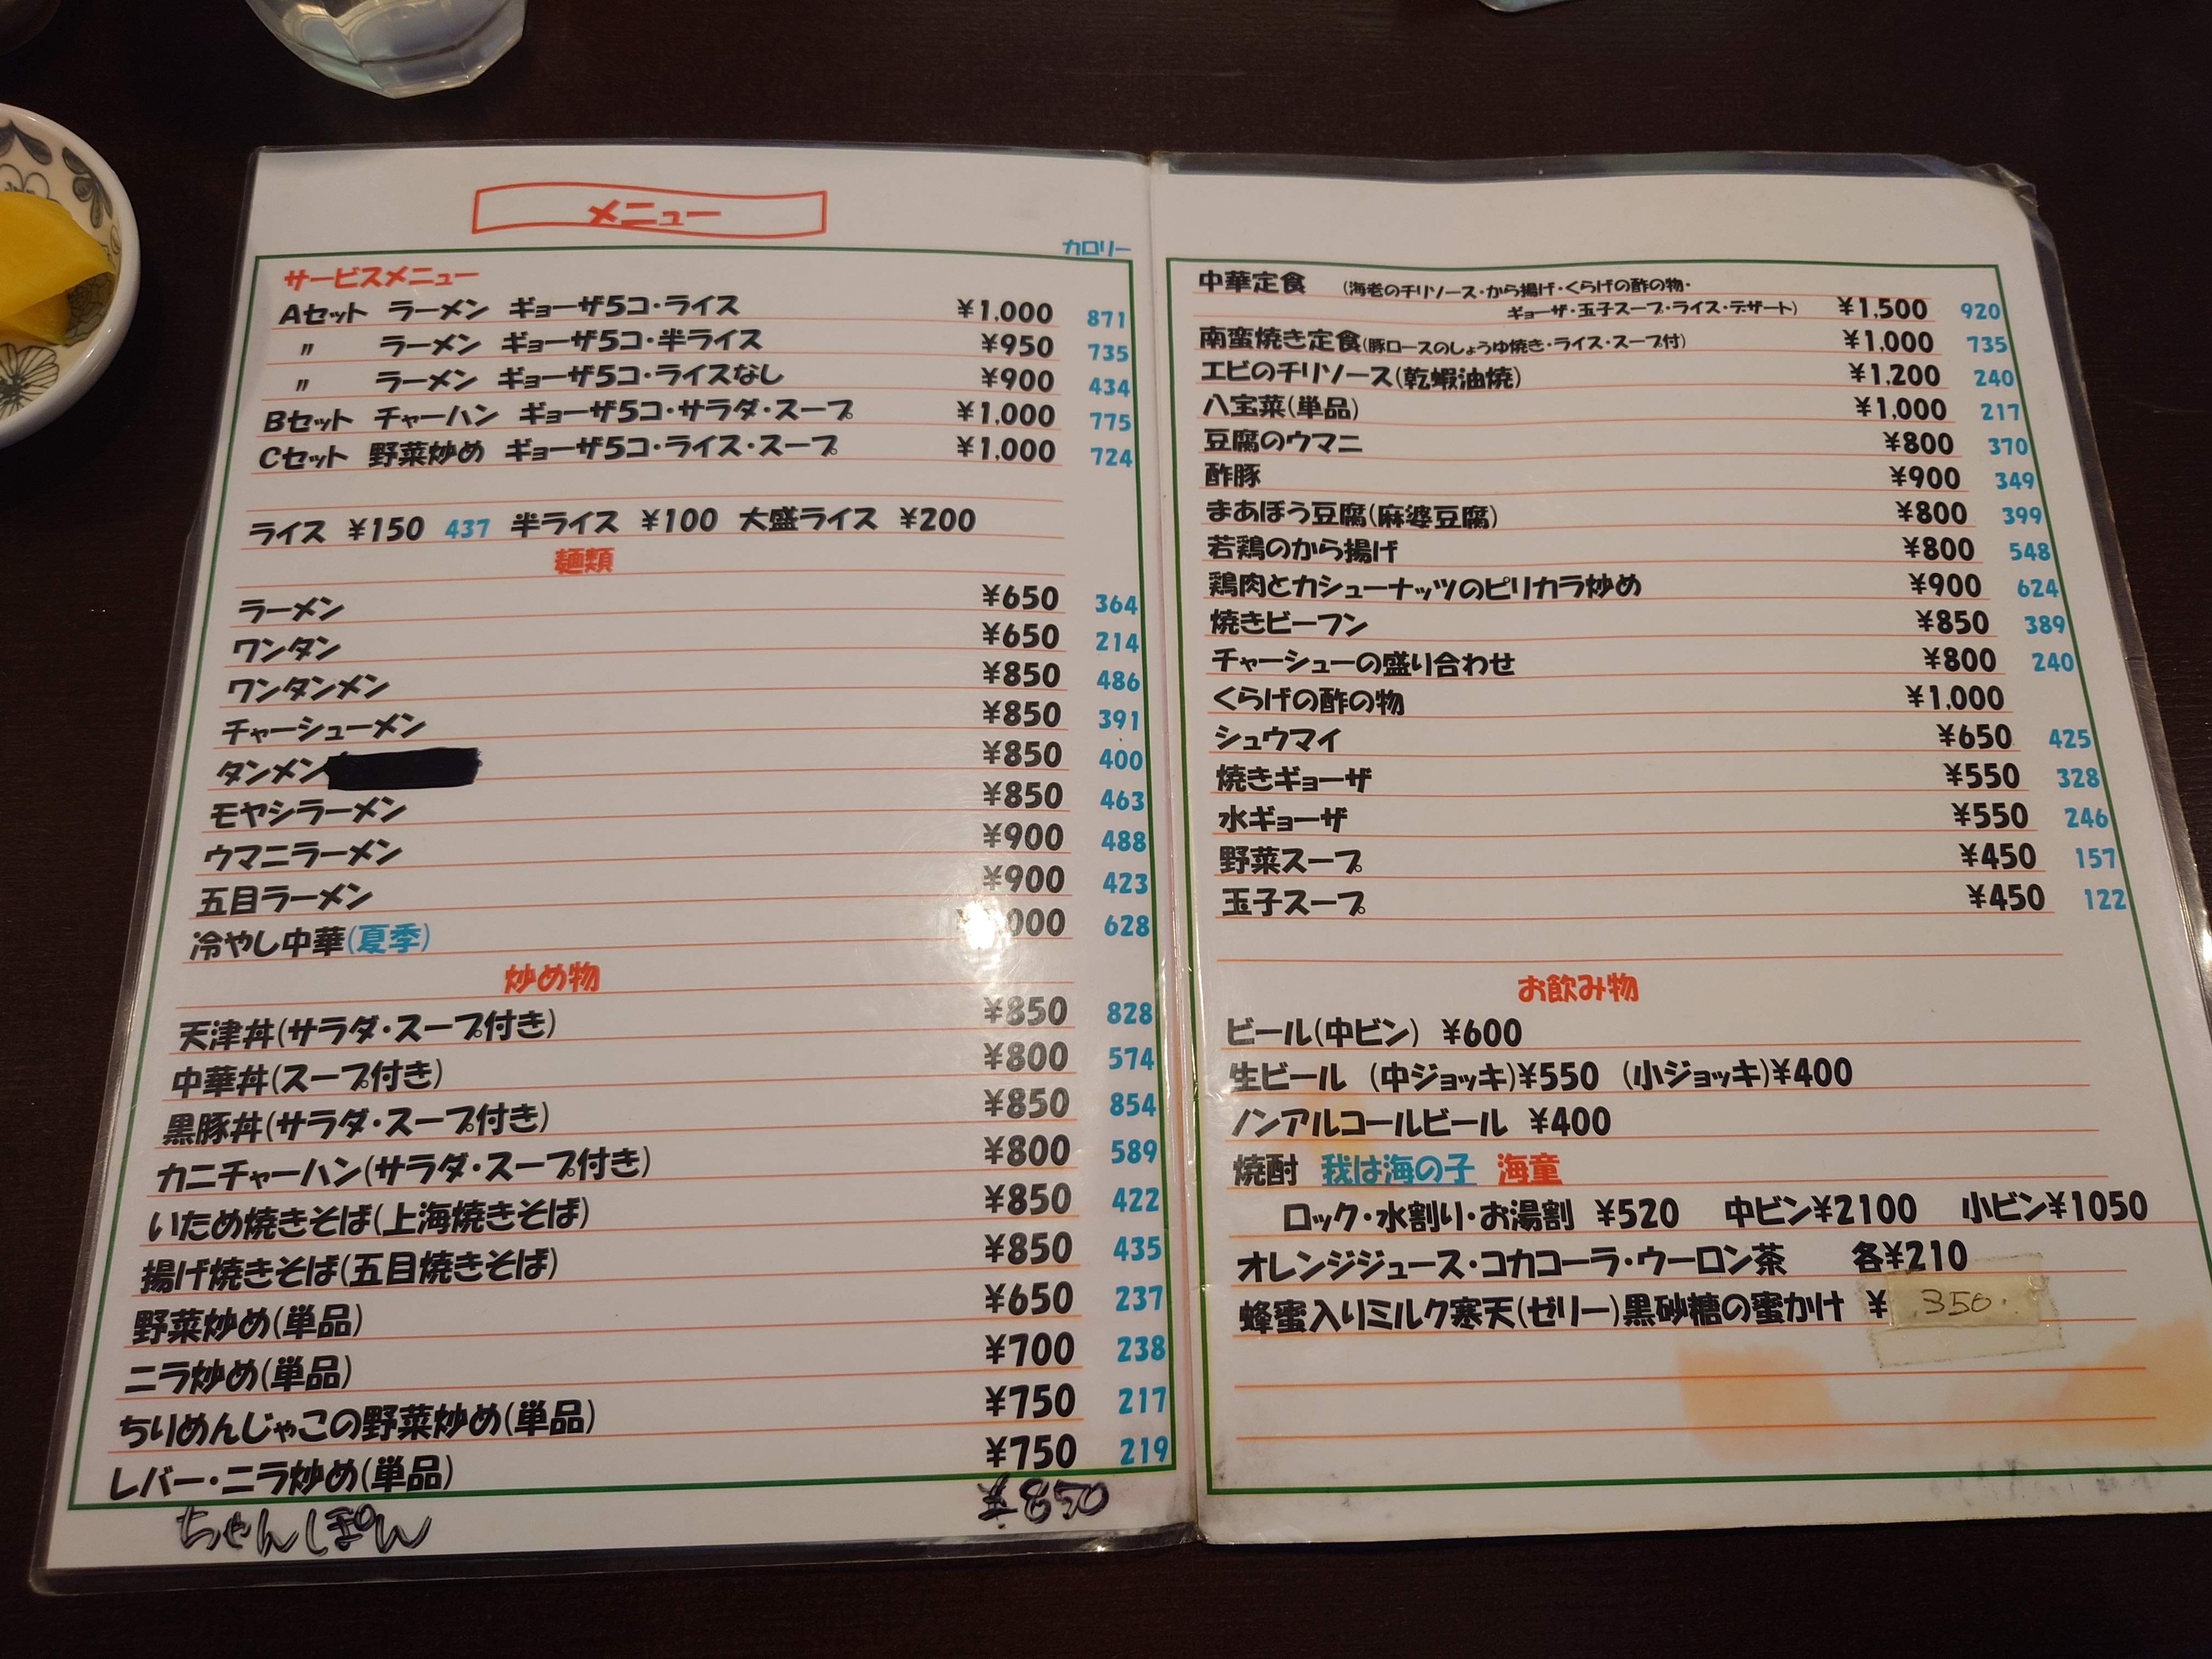 メニュー
カロリー
サービスメニュー
Aセット ラーメン ギョーザ5コ・ライス ¥1,000 871
〃 ラーメン ギョーザ5コ・半ライス ¥950 735
〃 ラーメン ギョーザ5コ・ライスなし ¥900 434
Bセット チャーハン ギョーザ5コ・サラダ・スープ ¥1,000 775
Cセット 野菜炒め ギョーザ5コ・ライス・スープ ¥1,000 724
ライス ¥150 437 半ライス ¥100 大盛ライス ¥200
麺類
ラーメン ¥650 364
ワンタン ¥650 214
ワンタンメン ¥850 486
チャーシューメン ¥850 391
タンメン ¥850 400
モヤシラーメン ¥850 463
ウマニラーメン ¥900 488
五目ラーメン ¥900 423
冷やし中華(夏季) 000 628
炒め物
天津丼(サラダ・スープ付き) ¥850 828
中華丼(スープ付き) ¥800 574
黒豚丼(サラダ・スープ付き) ¥850 854
カニチャーハン(サラダ・スープ付き) ¥800 589
いため焼きそば(上海焼きそば) ¥850 422
揚げ焼きそば(五目焼きそば) ¥850 435
野菜炒め(単品) ¥650 237
ニラ炒め(単品) ¥700 238
ちりめんじゃこの野菜炒め(単品) ¥750 217
レバー・ニラ炒め(単品) ¥750 219
ちゃんぽん ¥850
中華定食 (海老のチリソース・から揚げ・くらげの酢の物・
ギョーザ・玉子スープ・ライス・デザート) ¥1,500 920
南蛮焼き定食(豚ロースのしょうゆ焼き・ライス・スープ付) ¥1,000 735
エビのチリソース(乾蝦油焼) ¥1,200 240
八宝菜(単品) ¥1,000 217
豆腐のウマニ ¥800 370
酢豚 ¥900 349
まあぼう豆腐(麻婆豆腐) ¥800 399
若鶏のから揚げ ¥800 548
鶏肉とカシューナッツのピリカラ炒め ¥900 624
焼きビーフン ¥850 389
チャーシューの盛り合わせ ¥800 240
くらげの酢の物 ¥1,000
シュウマイ ¥650 425
焼きギョーザ ¥550 328
水ギョーザ ¥550 246
野菜スープ ¥450 157
玉子スープ ¥450 122
お飲み物
ビール(中ビン) ¥600
生ビール (中ジョッキ)¥550 (小ジョッキ)¥400
ノンアルコールビール ¥400
焼酎 我は海の子 海童
ロック・水割り・お湯割 ¥520 中ビン¥2100 小ビン¥1050
オレンジジュース・コカコーラ・ウーロン茶 各¥210
蜂蜜入りミルク寒天(ゼリー)黒砂糖の蜜かけ ¥ 350.